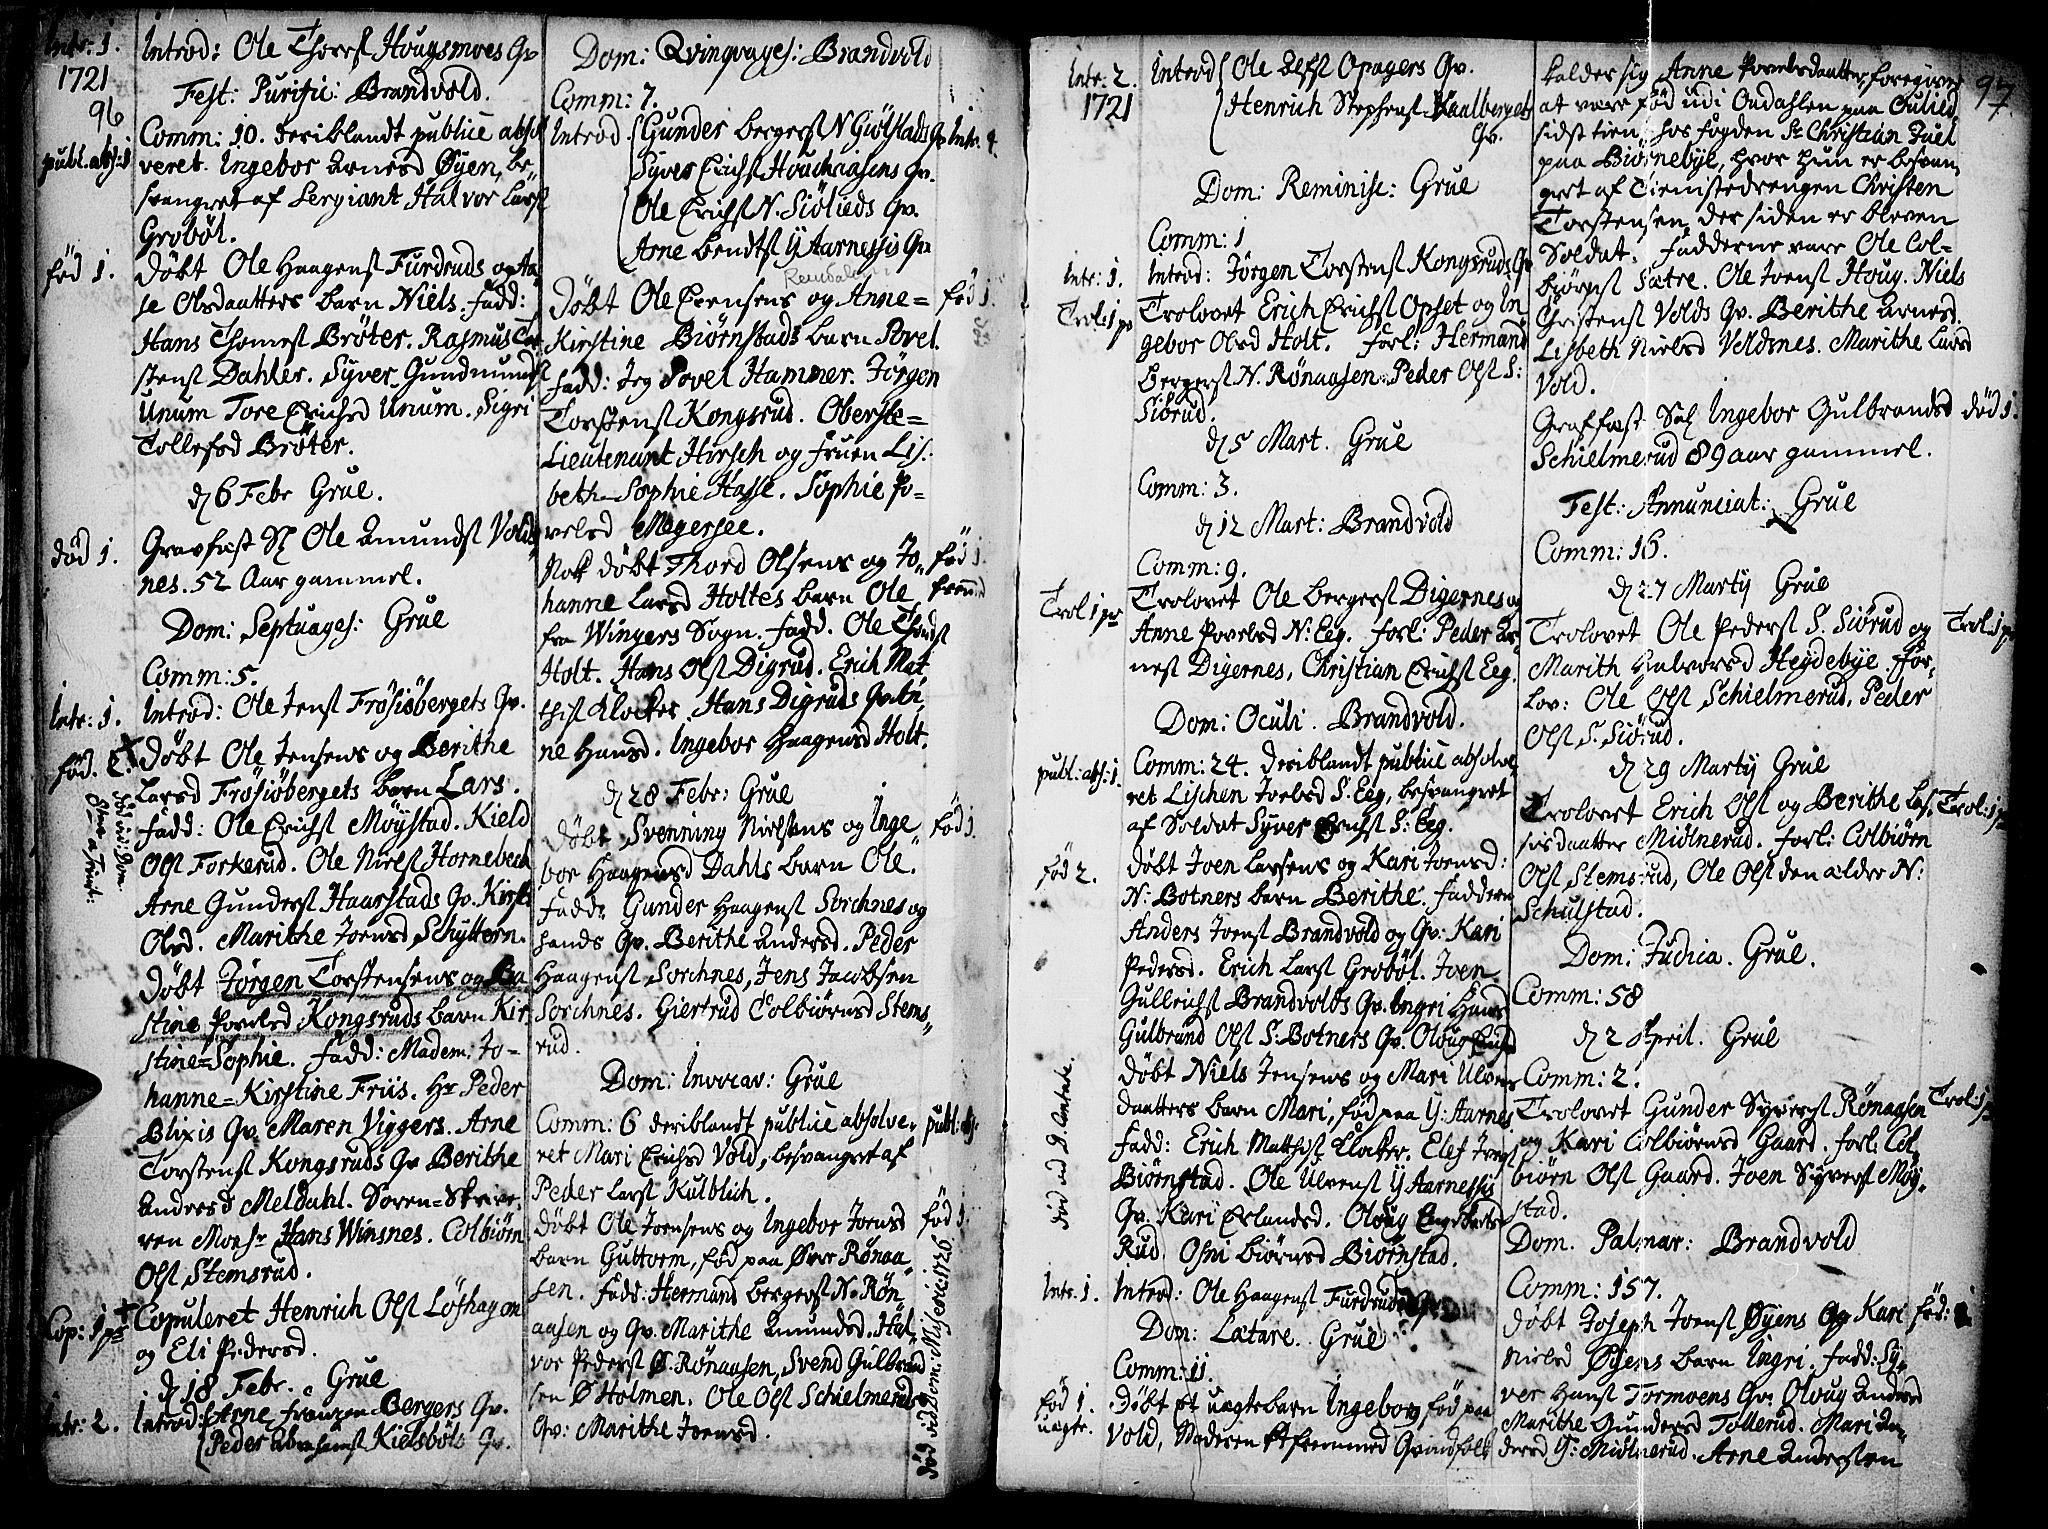 Intr: 1.
1721
96
Introd: Ole Thorsst Hougsmoes Qv
Fest: Purific: Brandvold.
publ. abs: 1
Comm: 10. deriblandt publicè absol
veret. Ingebor Arnesd Øyen, be-
svangret af Sergiant Halvor Larsst
Grobøl.
fød 1.
Døbt Ole Haagenst Furdruds og Aa
se Olsdaatters barn Niels. fadd:
Hans Thomest Brøter. Rasmus Tor
stenst Dahler. Syver Gundmundst
Unum Tore Erichsd Unum. Sigri
Tollefsd Brøter.
d 6 Febr Grue.
død 1.
Gravfæst Sl Ole Amundst Vold
nes. 52 Aar gammel.
Dom: Septuages: Grue
Comm: 5.
Intr: 1.
Introd: Ole Jenst Frøsiøbergets Qv.
fød. 2.
Døbt Ole Jensens og Berithe
Larsd Frøsiøbergets barn Lars.
fadd: Ole Erichst Møystad. Kield
Olst Forkerud. Ole Nielst Hornebech
Arne Gunderst Haarstads Qv. Kirste
Olsd. Marithe Joensd Schyttern.
Døbt Jørgen Torstensens og Ba
stine Povelsd Kongsruds barn Kir
stine=Sophie. fadd: Madem: Jo-
hanne=Kirstine Friis. Hr Peder
Blixis Qv. Maren Viggers. Arne
Torstenst Kongsruds Qv Berithe
Andersd Meldahl. Soren=Skrive
ren Monsr Hans Winsnes. Colbiørn
Olst Stemsrud.
Cop: 1 pr
Copuleret Henrich Olst Løfhagen
og Eli Pedersd.
d 18 Febr. Grue
Intr: 2.
Introd: Arne Franzen Bergers Qv.
Peder Abrahamst Kielsbøls Qv.
Dom: Qvinqvages: Brandvold
Comm: 7.
Introd Gunder bergerst N Giølstads Qv Intr. 4.
Syver Erichst Houchaasens Qv.
Ole Erichst N. Siølieds Qv.
Arne bendtst Y Aarnessis Qv
Døbt Ole Evensens og Anne= fød 1.
Kirstine Biørnstads barn Povel.
fadd: Jeg Povel Hammer. Jørgen
Torstenst Kongsrud. Oberste=
Lieutenant Hirsch og fruen Lis-
beth=Sophie Hasse. Sophie Po-
velsd Megersee.
Nok døbt Thord Olsens og Jo- fød 1.
hanne Larsd Holtes barn Ole fremd
fra Wingers Sogn. fadd. Ole Thordst
Holt. Hans Olst Digrud. Erich Mat
thist Klocker. Hans Digruds Qv. bi
ne Hansd. Ingebor Haagensd Holt.
d 28 Febr: Grue
Døbt Svenning Nielsens og Inge fød 1.
bor Haagensd Dahls barn Ole.
fadd: Gunder Haagenst Sorchnes og
hands Qv. Berithe Andersd. Peder
Haagenst Sorchnes, Jens Jacobsen
Sorchnes. Giertrud Colbiørnsd Stems-
rud.
Dom: Invocav: Grue
Comm: 6 deriblandt publicè absolve- publ: abs:
ret Mari Erichsd Vold, besvangret af
Peder Larst Kulblich.
Døbt Ole Joensens og Ingebor Joensd fød 1.
barn Guttorm, fød paa Øvre Rønaa-
sen. fadd: Hermand bergerst N. Røn
aasen og Qv. Marithe Amundsd. Hal
vor Pederst Ø. Rønaasen, Svend Gulbrand
sen Ø Holmen. Ole Olst Schielmeruds
Qv: Marithe Joensd.
død vid Dom: Miseric: 1726
Intr: 2.
1721
Introd Ole Olst Opagers Qv.
Henrich Stephenst Kaalbergets
Qv.
Dom: Reminisc: Grue
Comm: 1
Intr: 1.
Introd: Jørgen Torstenst Kongsruds Qv
Trol: 1 pr
Trolovet Erich Erichst Opset og In
gebor Olsd Holt. forl: Hermand
bergerst N. Rønaasen. Peder Olst S:
Siørud.
d 5 Mart. Grue
Comm: 3.
d 12 Mart: Brandvold
Comm: 9.
Trol 1 pr
Trolovet Ole bergerst Digernes og
Anne Povelsd N: Eeg. forl: Peder Ar-
nest Digernes, Christian Erichst Eeg.
Dom: Oculi. Brandvold.
publ: abs: 1.
Comm: 24. deriblandt publicè absolve
ret Lischen Joelsd S. Eeg, besvangret
af Soldat Syver Erichst S: Eg.
fød 2.
Døbt Joen Larsens og Kari Joensd:
N: Botners barn Berithe. faddere
Anders Joenst Brandvold og Qv: Kari
Pedersd. Erich Larst Grobøl. Joen
Gullichst Brandvolds Qv. Ingri Hansd
Gulbrand Olst S: Botners Qv. Oloug
Døbt Niels Jensens og Mari Ulves
daatters barn Mari, fød paa Y: Aarnes
fadd: Erich Matthist Klocker. Elef
Biørnstad. Ole Ulvenst Y Aarnessis
Qv. Kari Erlandsd. Oloug
Rud. Osni Biørnsd Biørnstad.
Intr. 1.
Introd: Ole Haagenst Furdruds Qv.
Dom: Lætare. Grue
Comm: 11.
fød 1.
uægte.
Døbt et uægte barn Ingebor fød paa
Vold, Moderen et fremmed Qvindfolk
kalder sig Anne Povelsdaatter, foregiver 97.
at være fød udi Ondahlen paa
sidst tien. hos fogden Sr Christian Juel
paa Biørnebye, hvor hun er besvan-
gret af Tienistedrengen Christen
Torstensen, der siden er bleven
Soldat. fadderne vare Ole Col-
biørnst Sætre. Ole Joenst Houg. Niels
Christenst Volds Qv. Berithe Arnesd.
Lisbeth Nielsd Voldsnes. Marithe Larsd
Vold.
Graffæst Sl Ingebor Gulbrandsd død 1.
Schielmerud 89 aar gammel.
Fest: Annunciat: Grue
Comm: 16.
d 27 Martij Grue
Trolovet Ole Pederst S. Siørud og Trol: 1 pr
Marith Halvorsd Heydebye. For-
lov: Ole Olst Schielmerud. Peder
Olst S. Siørud.
d 29 Martij Grue
Trolovet Erich Olst og Berithe Las- Trol: 1 pr
sisdaatter Miølnerud. forl: Colbiørn
Olst Stemsrud, Ole Olst den ælder N:
Schulstad.
Dom: Judica. Grue.
Comm: 58
d 2 April. Grue
Comm: 2.
Trolovet Gunder Syverst Rønaasen Trol: 1 pr
og Kari Colbiørnsd Gaard. forl: Col
biørn Olst Gaard. Joen Syverst Møy-
stad.
Dom. Palmar: Brandvold
Comm: 157.
Døbt Joseph Joenst Øyens og Kari fød: 1
Nielsd Øyens barn Ingri. fadd: Sy-
ver Hanst Tormoens Qv. Oloug Andersd
Marithe Gundersd Tollerud. Mari An-
dersd Y: Miølnerud. Arne Andersen